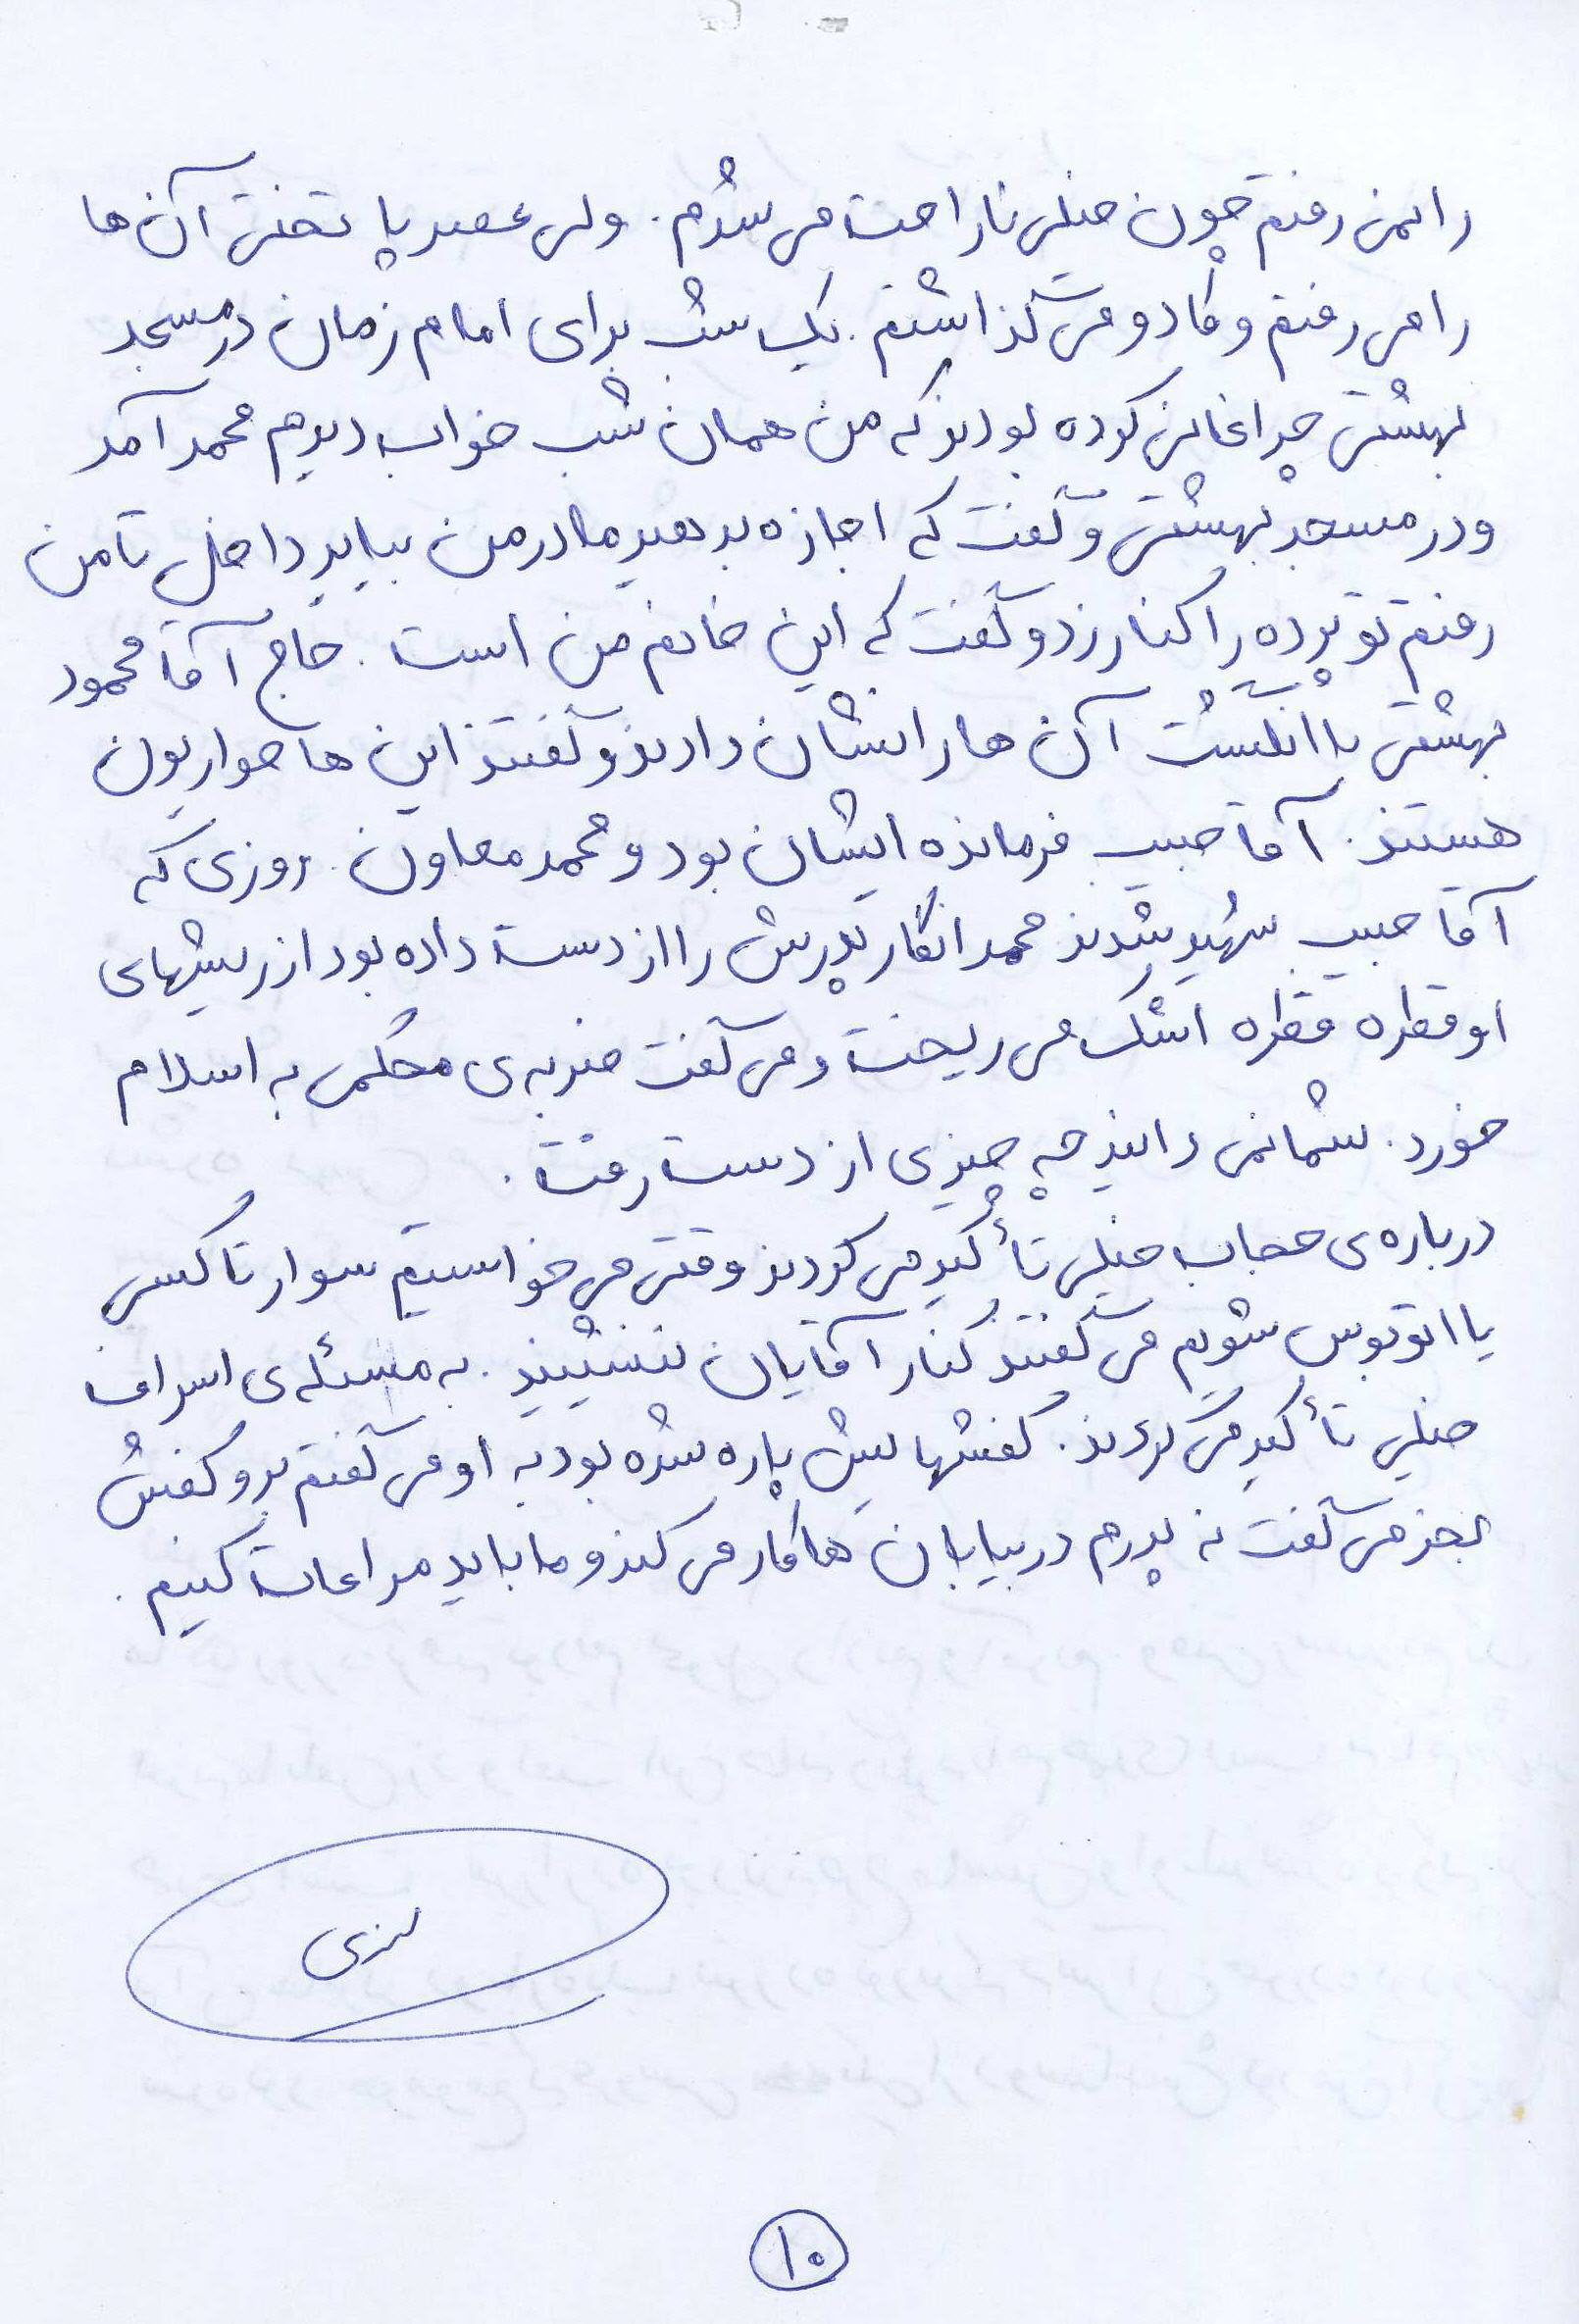 را نمی رفتم چون خیلی ناراحت می شدم. ولی عصر پا تختی آن ها
را می رفتم و کادو می گذاشتم. یک شب برای امام زمان در مسجد
بهشتی چراغانی کرده بودند که من همان شب خواب دیدم محمد آمد
و در مسجد بهشتی و گفت که اجازه بدهید مادر من بیاید داخل تا من
رفتم تو پرده را کنار زد و گفت که این خانم من است. حاج آقا محمود
بهشتی با انگشت آن ها را نشان دادند و گفتند این ها حواریون
هستند. آقا حبیب فرمانده ایشان بود و محمد معاون. روزی که
آقا حبیب شهید شدند محمد انگار پدرش را از دست داده بود از ریشهای
او قطره قطره اشک می ریخت و می گفت ضربه ی محکمی به اسلام
خورد. شما نمی دانید چه چیزی از دست رفت.
درباره ی حجاب خیلی تأکید می کردند وقتی می خواستیم سوار تاکسی
یا اتوبوس شویم می گفتند کنار آقایان ننشینید. به مسئله ی اسراف
خیلی تأکید می کردند. کفشهایش پاره شده بود به او می گفتم برو کفش
بخر می گفت نه پدرم در بیابان ها کار می کند و ما باید مراعات کنیم.
۱۰